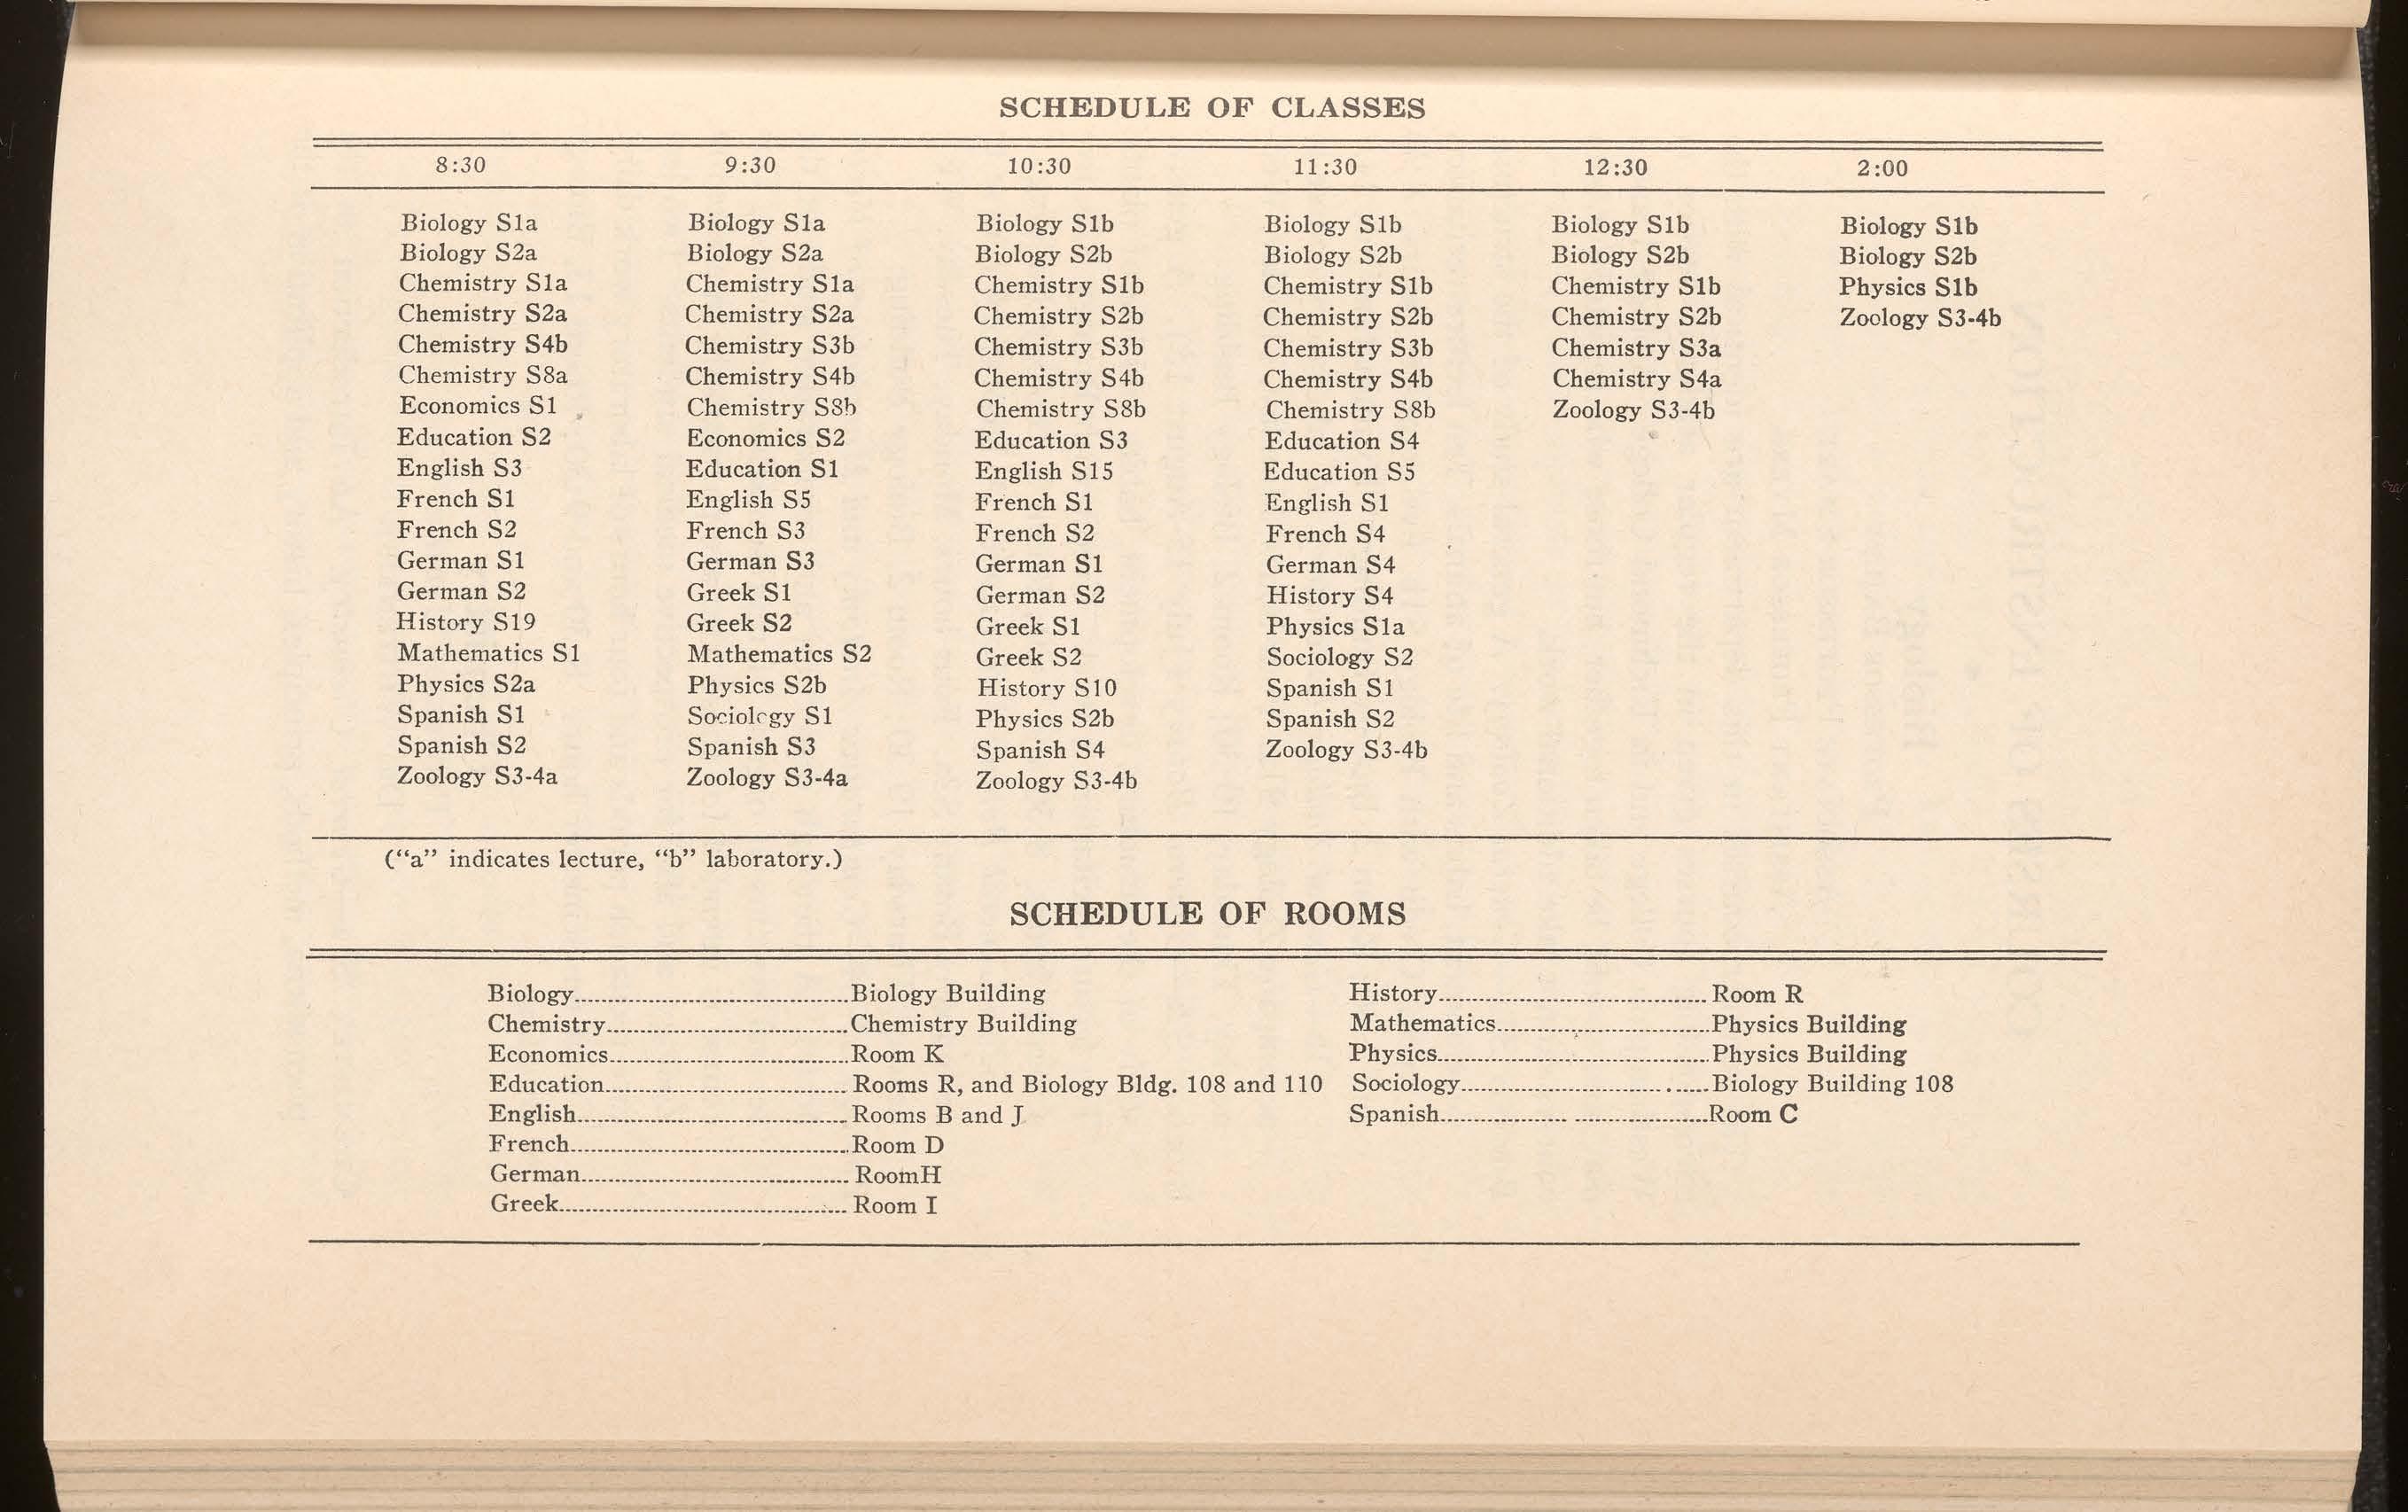 SCHEDULE OF CLASSES
8:30 9:30 10:30 11:30 12:30 2:00
Biology S1a Biology S1a Biology S1b Biology S1b Biology S1b Biology S1b
Biology S2a Biology S2a Biology S2b Biology S2b Biology S2b Biology S2b
Chemistry S1a Chemistry S1a Chemistry S1b Chemistry S1b Chemistry S1b Physics S1b
Chemistry S2a Chemistry S2a Chemistry S2b Chemistry S2b Chemistry S2b Zoology S3-4b
Chemistry S4b Chemistry S3b Chemistry S3b Chemistry S3b Chemistry S3a
Chemistry S8a Chemistry S4b Chemistry S4b Chemistry S4b Chemistry S4a
Economics S1 Chemistry S8b Chemistry S8b Chemistry S8b Zoology S3-4b
Education S2 Economics S2 Education S3 Education S4
English S3 Education S1 English S15 Education S5
French S1 English S5 French S1 English S1
French S2 French S3 French S2 French S4
German S1 German S3 German S1 German S4
German S2 Greek S1 German S2 History S4
History S19 Greek S2 Greek S1 Physics S1a
Mathematics S1 Mathematics S2 Greek S2 Sociology S2
Physics S2a Physics S2b History S10 Spanish S1
Spanish S1 Sociology S1 Physics S2b Spanish S2
Spanish S2 Spanish S3 Spanish S4 Zoology S3-4b
Zoology S3-4a Zoology S3-4a Zoology S3-4b
("a" indicates lecture, "b" laboratory.)
SCHEDULE OF ROOMS
Biology........Biology Building History........Room R
Chemistry........Chemistry Building Mathematics........Physics Building
Economics........Room K Physics........Physics Building
Education........Rooms R, and Biology Bldg. 108 and 110 Sociology........Biology Building 108
English........Rooms B and J Spanish........Room C
French........Room D
German........RoomH
Greek........Room I